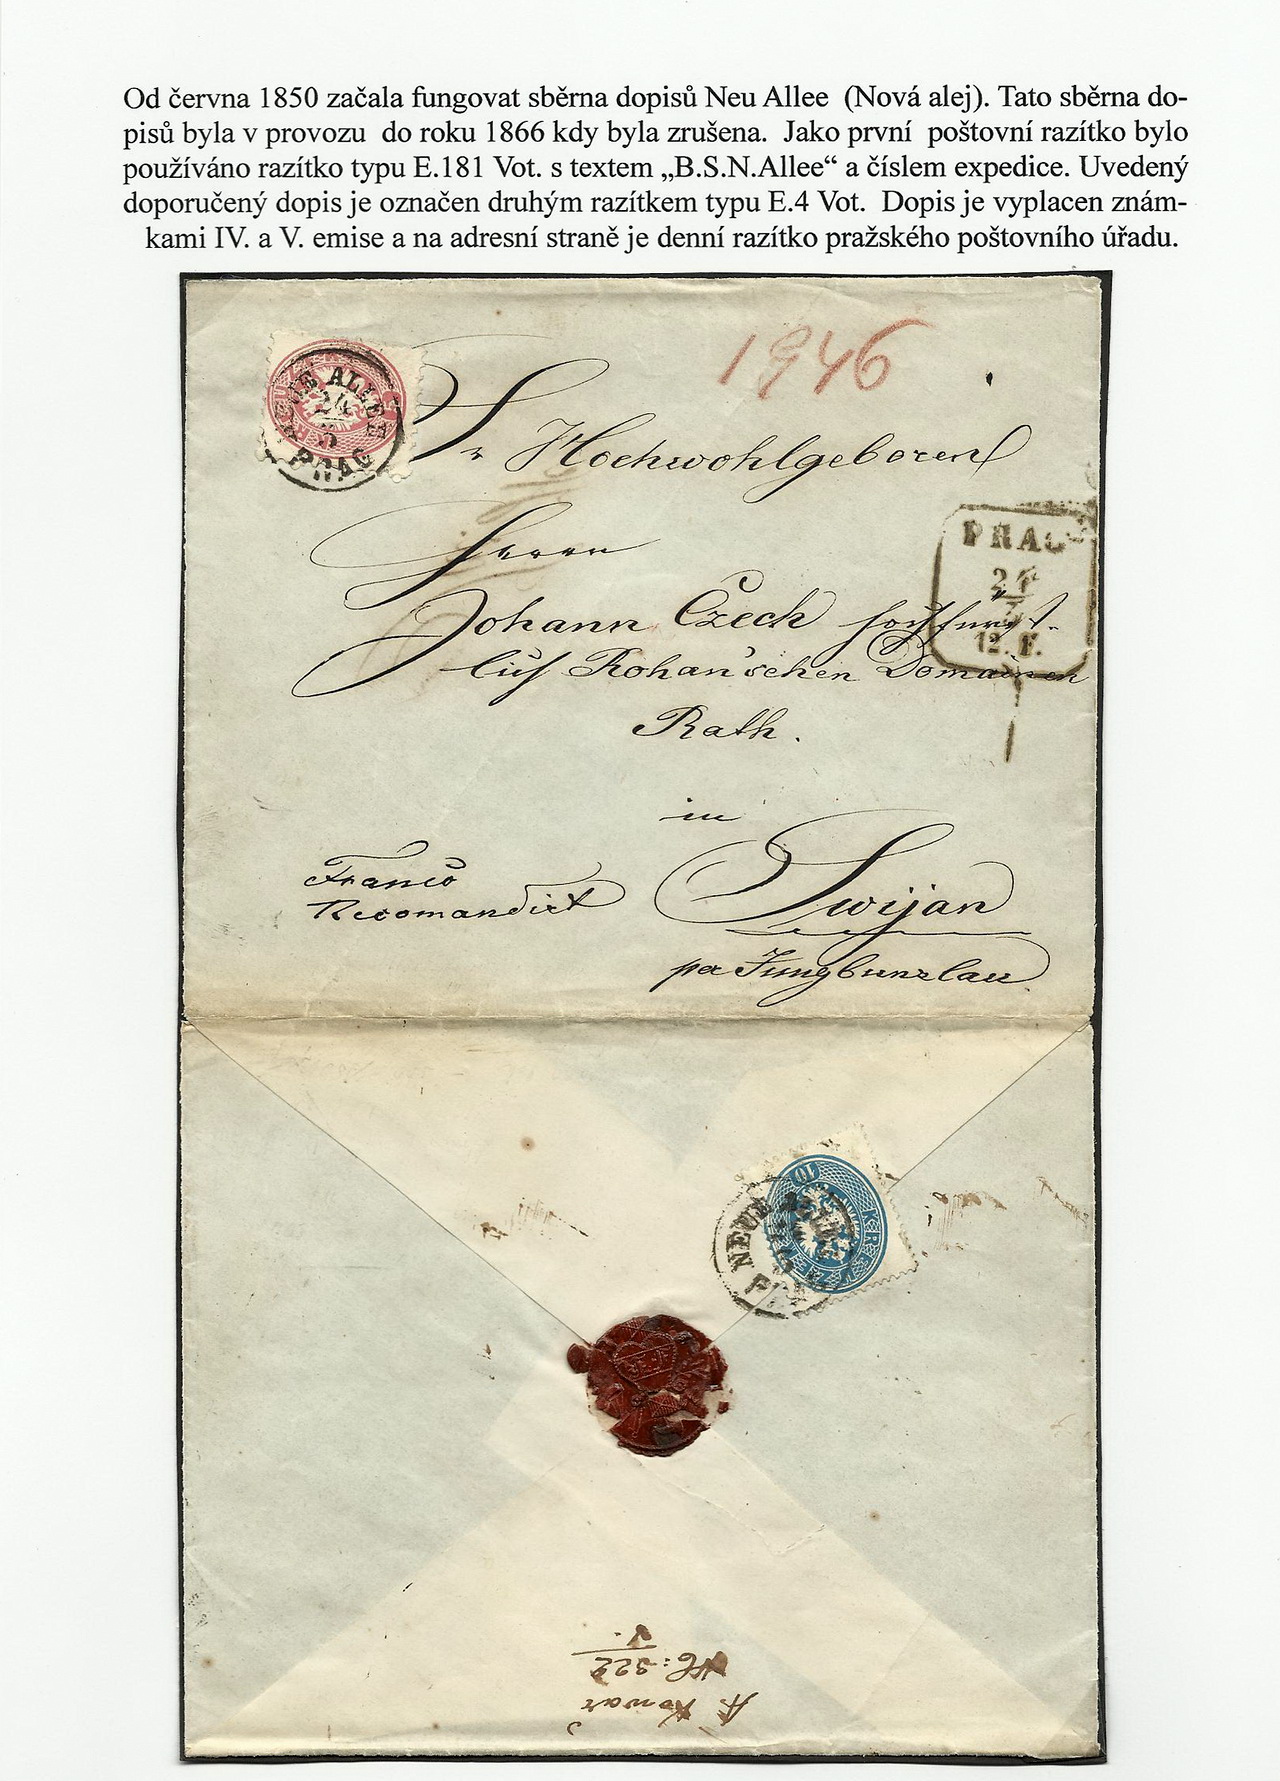 Od června 1850 začala fungovat sběrna dopisů Neu Allee (Nová alej). Tato sběrna do-
pisů byla v provozu do roku 1866 kdy byla zrušena. Jako první poštovní razítko bylo
používáno razítko typu E.181 Vot. s textem „B.S.N.Allee“ a číslem expedice. Uvedený
doporučený dopis je označen druhým razítkem typu E.4 Vot. Dopis je vyplacen znám-
kami IV. a V. emise a na adresní straně je denní razítko pražského poštovního úřadu.
1946
NEUE ALLEE
24
5
PRAG
Sr Hochwohlgeboren
Herrn
PRAG
24
12. F.
Johann Czech hochfürst-
lich Rohan'schen Domainen
Rath.
in
Franco
Recomandirt
Swijan
per Jungbunzlau
10 KREUZER
NEUE ALLEE
A. Kowar
N: 322
V.